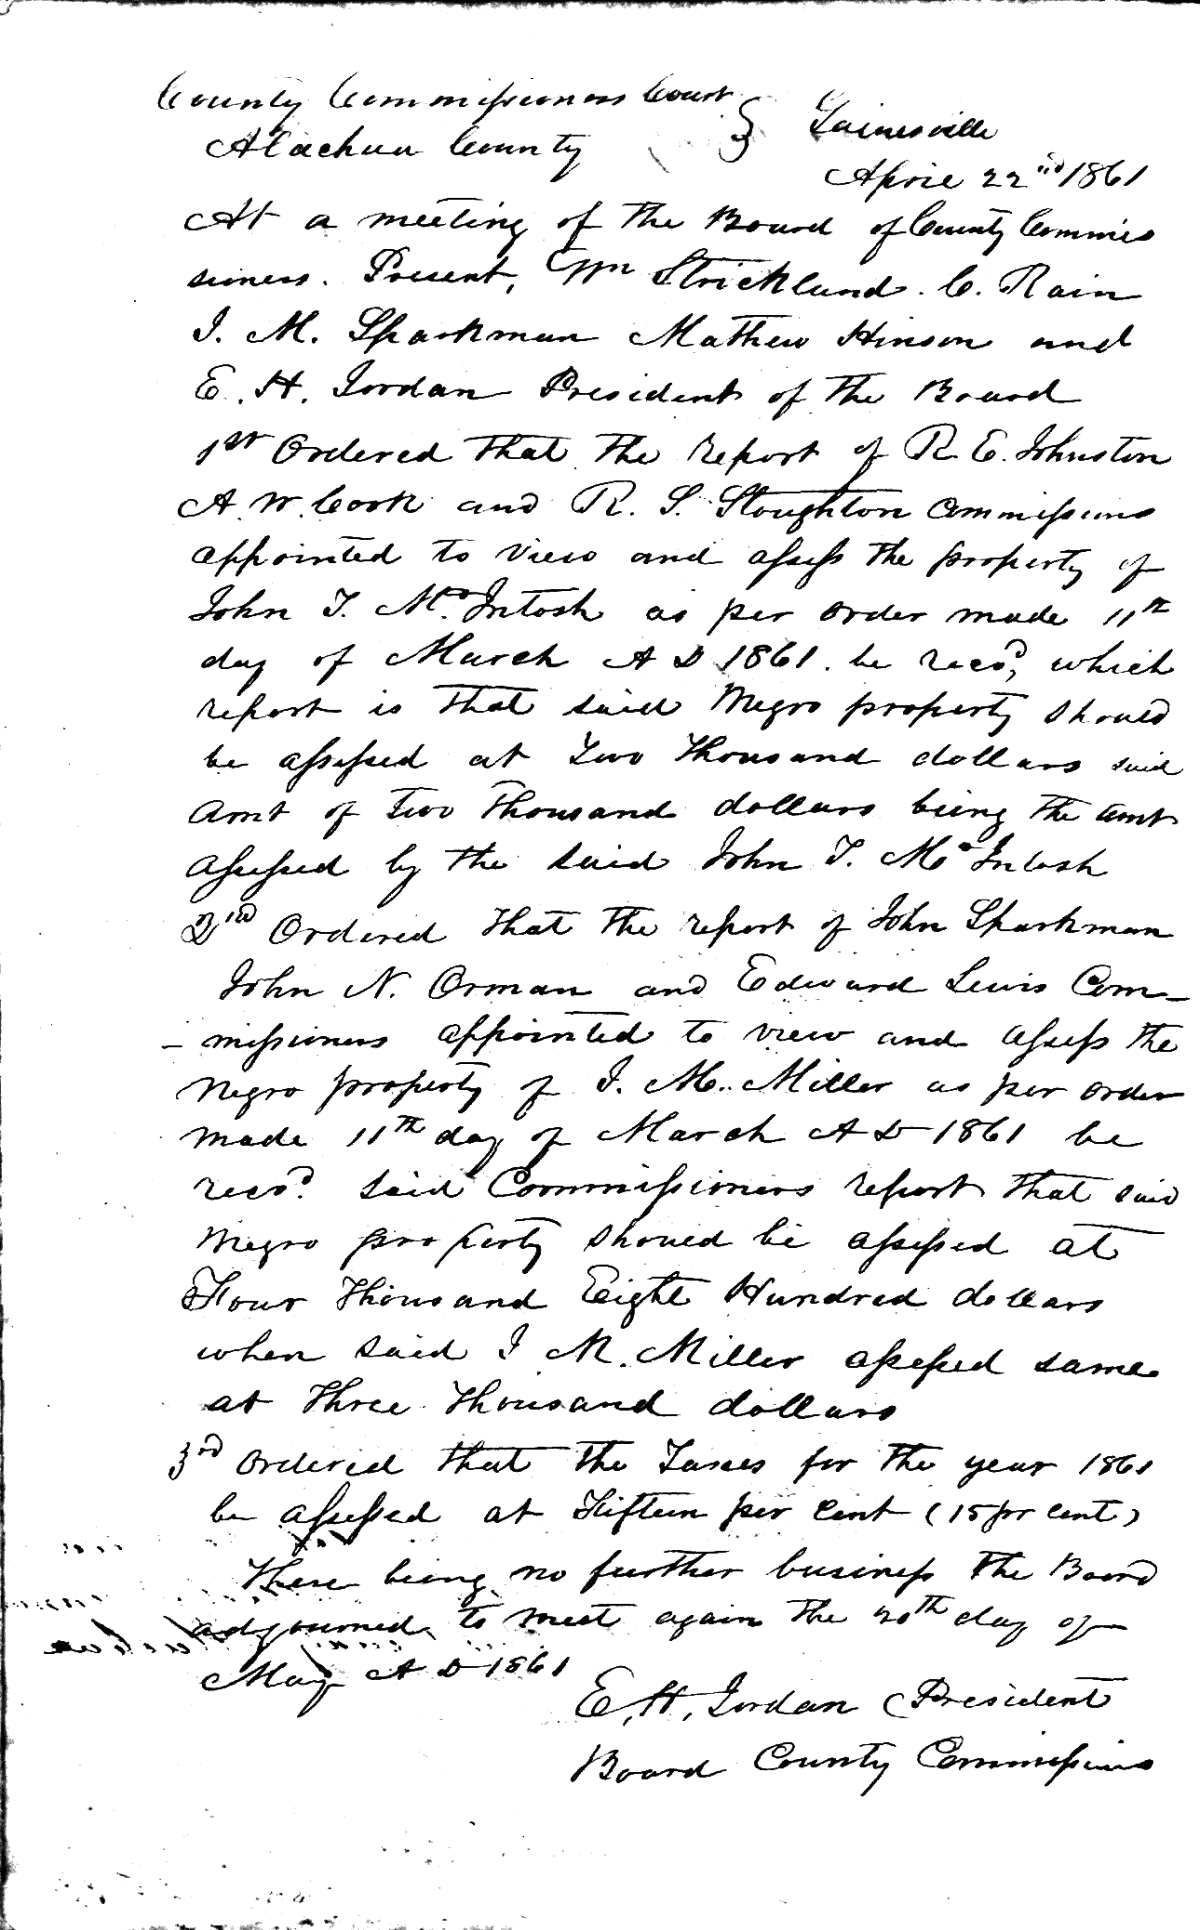 County Commissioners Court
Alachua County } Gainesville
April 22nd 1861
At a meeting of the Board of County Commis
sioners. Present, Wm Strickland. C. Rain
J. M. Sparkman Mathew Hinson and
E. H. Jordan President of the Board
1st Ordered that the report of R. E. Johnston
A. W. Cook and R. S. Stoughton Commissions
appointed to view and assess the property of
John T. Mc.Intosh as per order made 11th
day of March A D 1861. be recd, which
report is that said Negro property should
be assessed at Two Thousand dollars said
Amt of Two Thousand dollars being the amt
assessed by the said John T. McIntosh
2nd Ordered that the report of John Sparkman
John N. Orman and Edward Lewis Com-
- missioners appointed to view and assess the
Negro property of J. M. Miller as per order
made 11th day of March A D 1861 be
recd. said Commissioners report that said
Negro property should be assessed at
Four Thousand Eight Hundred dollars
when said J M. Miller assessed same
at Three Thousand dollars
3rd Ordered that the Taxes for the year 1861
be assessed at Fifteen per cent (15 pr cent)
There being no further business the Board
adjourned, to meet again the 20th day of
May A D 1861
E. H. Jordan President
Board County Commissions